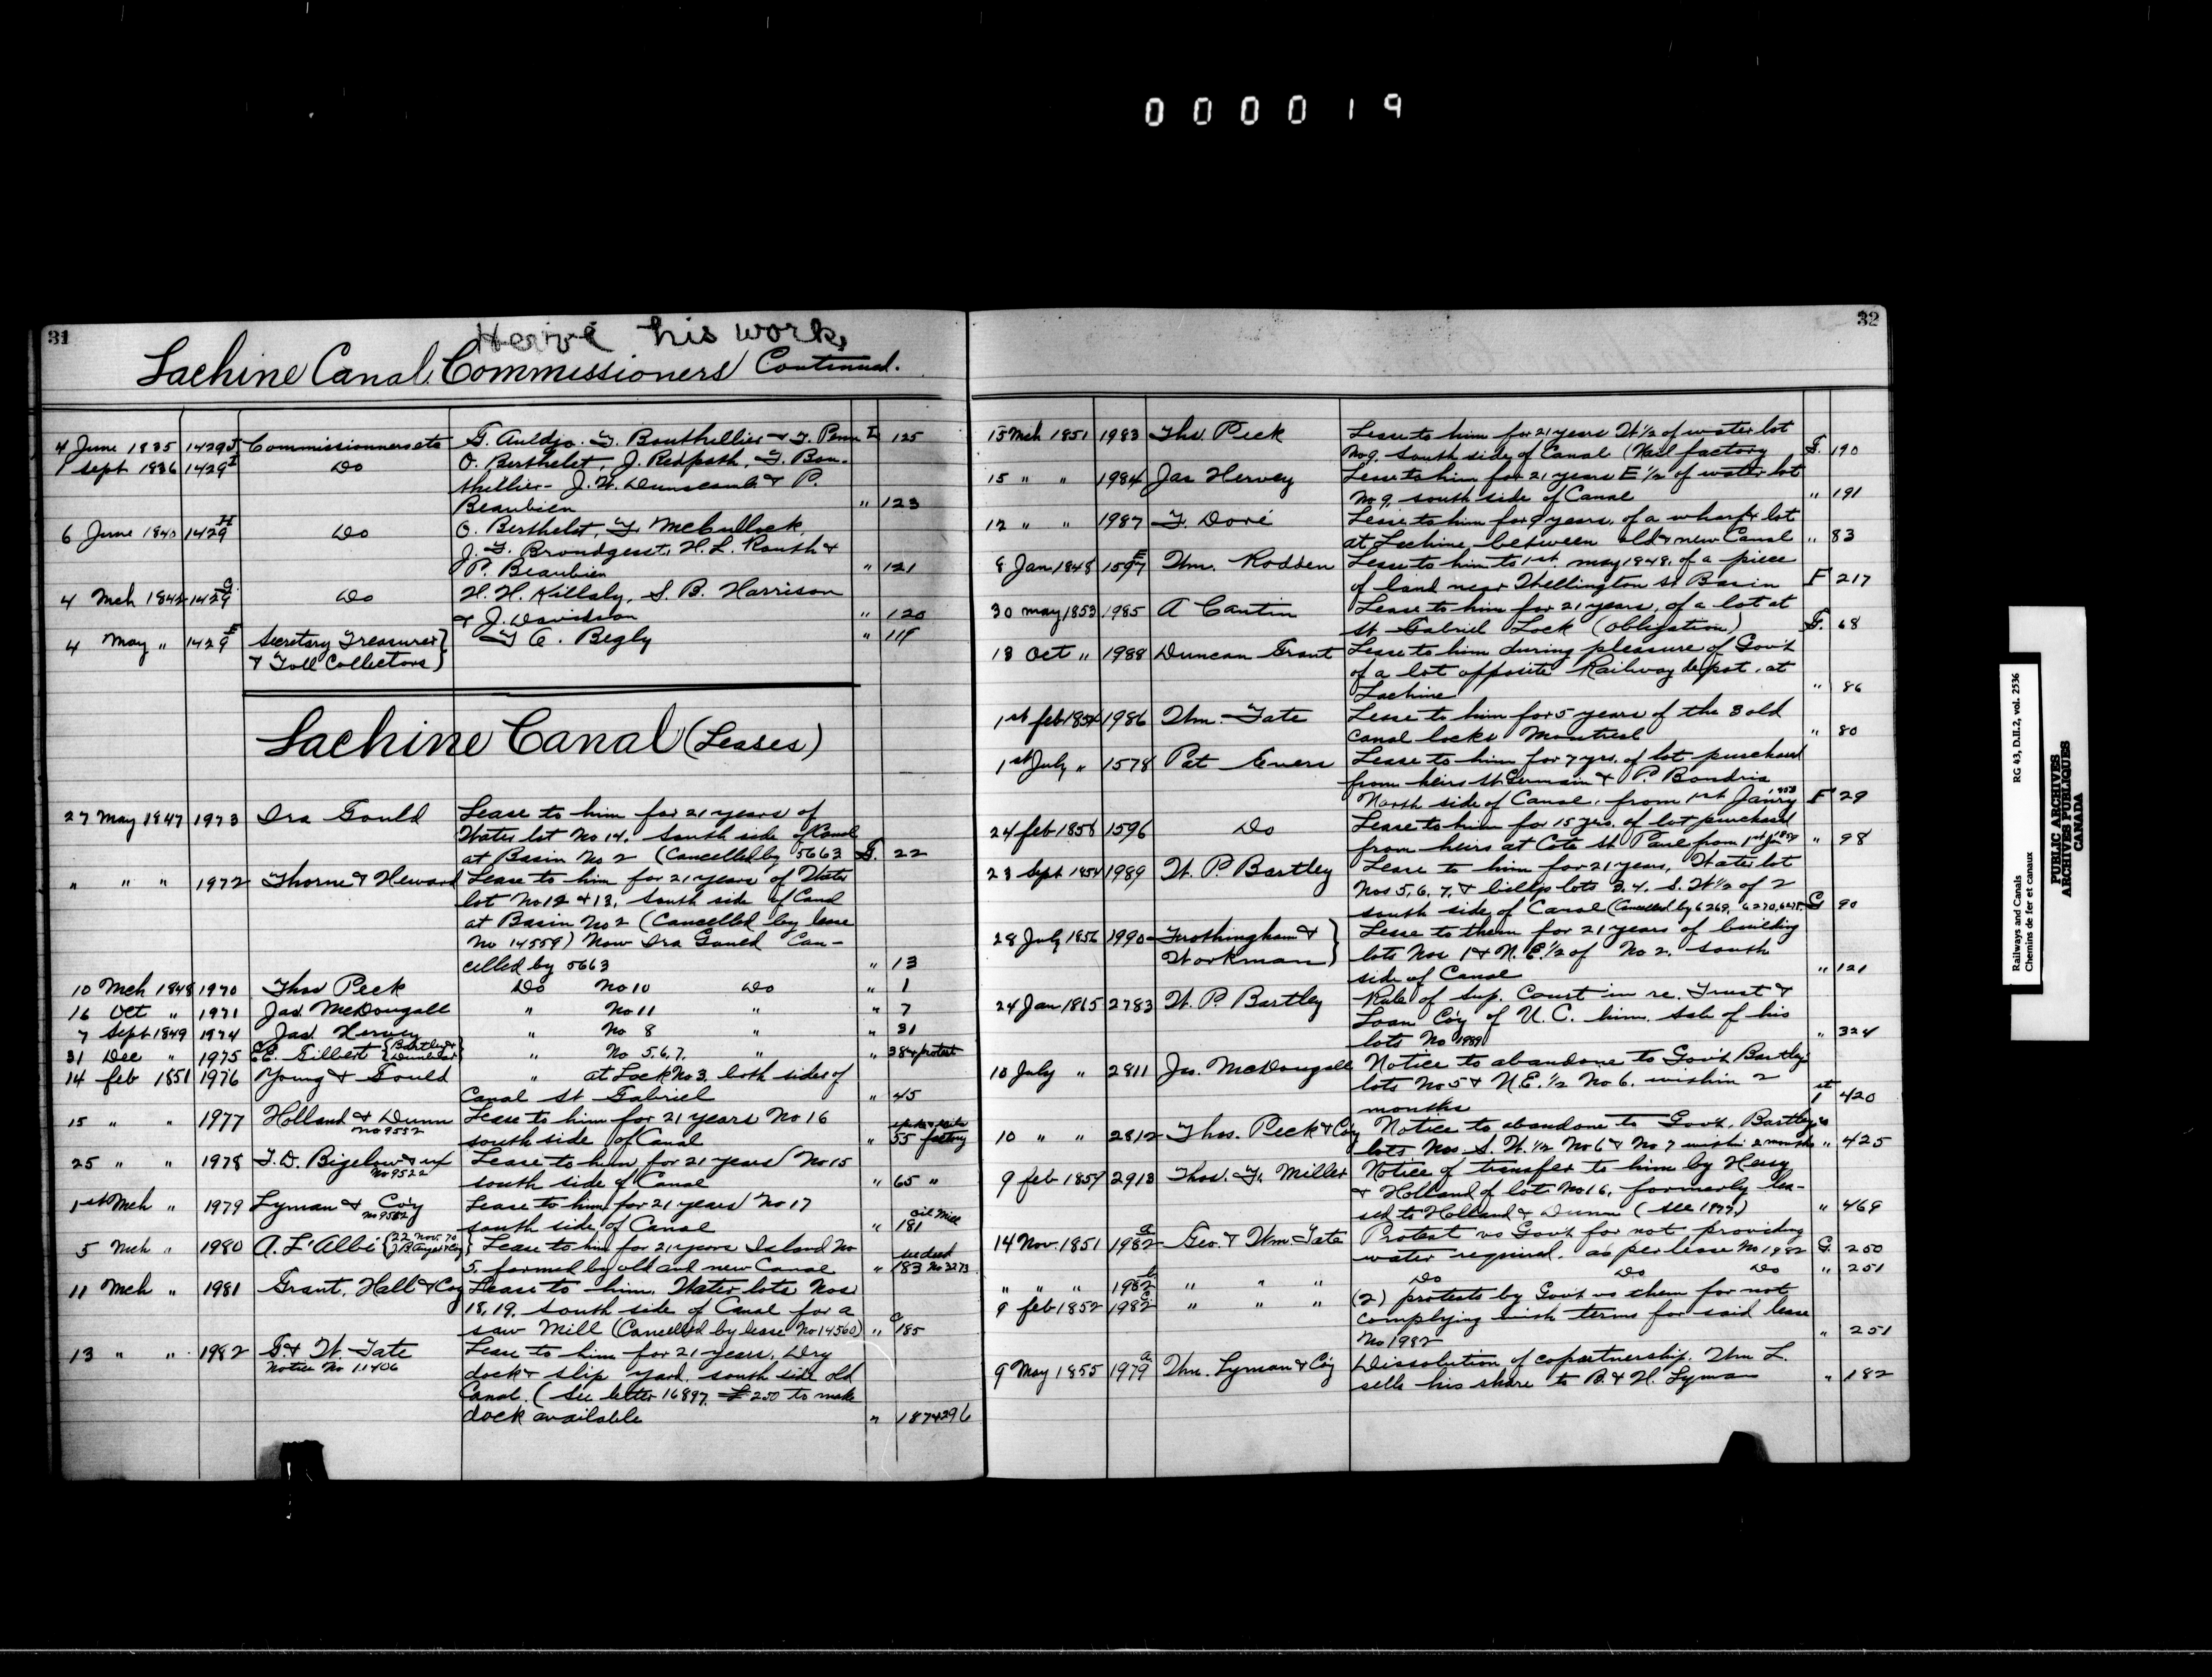 000019
31
Hervé his work,
Lachine Canal Commissioners Continued.
4 June 1835 1429 J Commissionners etc G. Auldjo. T. Bouthellier & T. Penn I. 125
1 sept 1836 1429 I Do O. Berthelet, J. Redpath, T. Bou-
thellier - J. W. Dunscomb & P.
Beaubien " 123
6 June 1840 1429 H Do O. Berthelet, T. McCullock,
J. T. Brondgeest, H. L. Routh &
P. Beaubien " 121
4 Mch 1842 1429 G Do H. H. Killaly, S. B. Harrison
& J. Davidson " 120
4 May " 1429 F Secretary Treasurer } T C. Begly " 119
& Toll Collectors }
Lachine Canal (Leases)
27 May 1847 1973 Ira Gould Lease to him for 21 years of
Water lot No 14. South side of Canal
at Basin No 2 (Cancelled by 5663 G. 22
" " " 1972 Thorne & Heward Lease to him for 21 years of Water
lot No 12 & 13, South side of Canal
at Basin No 2 (Cancelled by lease
No 14559) Now Ira Gould Can-
celled by 5663 " 13
10 Mch 1848 1970 Thos Peck Do No 10 Do " 1
16 Oct " 1971 Jas. McDougall " No 11 " " 7
7 Sept 1849 1974 Jas. Hervey " No 8 " " 31
31 Dec " 1975 E.E. Gilbert { Bartley & Dunbar } " No 5.6.7. " " 38 & protest
14 feb 1851 1976 Young & Gould " at Lock No 3. both sides of
Canal St Gabriel " 45
15 " " 1977 Holland & Dunn Lease to him for 21 years No 16
No 9552 south side of Canal " 55 factory
25 " " 1978 T. D. Bigelow & uf Lease to him for 21 years No 15
No 9522 south side of Canal " 65 "
1st Mch " 1979 Lyman & Coy Lease to him for 21 years No 17
No 9582 south side of Canal " 181 oil Mill
5 Mch " 1980 A. L'Albi { 22 Nov. 70 Lease to him for 21 years Island No
5. formed by old and new Canal " 183 see deed No 3273
11 Mch " 1981 Grant, Hall & Coy Lease to him. Water lots Nos
18, 19. south side of Canal for a
saw Mill (Cancelled by lease No 14560) " 185
13 " " 1982 G & W. Tate Lease to him for 21 years, Dry
Notice No 11406 dock & slip yard. south side old
Canal. (See letter 16897. £250 to make
dock available " 187 & 296
32
15 Mch 1851 1983 Thos. Peck Lease to him for 21 years W 1/2 of water lot
No 9. South side of Canal (Nail factory G. 190
15 " " 1984 Jas Hervey Lease to him for 21 years E 1/2 of water lot
No 9. south side of Canal " 191
12 " " 1987 T. Doré Lease to him for 9 years. of a wharf & lot
at Lachine between old & new Canal " 83
8 Jan 1848 1597 E Wm. Rodden Lease to him to 1st. may 1948. of a piece
of land near Wellington St Basin F 217
30 may 1853 1985 A Cantin Lease to him for 21 years. of a lot at
St Gabriel Lock (Obligation) G. 68
18 Oct " 1988 Duncan Grant Lease to him during pleasure of Gov't
of a lot opposite Railway depot. at
Lachine " 86
1st feb 1854 1986 Wm. Tate Lease to him for 5 years of the 3 old
Canal locks Montreal " 80
1st July " 1578 Pat Evers Lease to him for 7 yrs. of lot purchased
from heirs St Germain & P. Boudria
North side of Canal. from 1st Janry 1853 F 29
24 feb 1858 1596 Do Lease to him for 15 yrs. of lot purchased
from heirs at Cote St Paul from 1st Jan 1859 " 98
23 Sept 1854 1989 W. P Bartley Lease to him for 21 years, Water lot
Nos 5. 6. 7. & bildg lots 3. 4. S. W 1/2 of 2
south side of Canal (Cancelled by 6269. 6270, G 90
28 July 1856 1990 Frothingham & } Lease to them for 21 years of building
Workman } lots Nos 1 & N. E. 1/2 of No 2. south
side of Canal " 121
24 Jan 1865 2783 W. P. Bartley Rule of Sup. Court in re. Trust &
Loan Coy of U. C. him. Sale of his
lots No 1989 " 324
10 July " 2811 Js. McDougall Notice to abandone to Gov't Bartley
lots No 5 & N.E. 1/2 No 6. within 2
months 1st 420
10 " " 2812 Thos. Peck & Coy Notice to abandone to Govt. Bartley's
lots Nos S. W. 1/2 No 6 & No 7 within 2 months " 425
9 feb 1854 2913 Thos. F. Miller Notice of transfer to him by Hervy
& Holland of lot No 16, formerly lea-
sed to Holland & Dunn (see 1977,) " 469
14 Nov. 1851 1982 a Geo. & Wm. Tate Protest vs Govt for not providing
water required. as per lease No 1982 G. 250
" " " 1982 b " " " Do Do Do " 251
9 feb 1852 1982 c " " " (2) protests by Govt vs them for not
complying with terms for said lease
No 1982 " 251
9 May 1855 1979 a Wm. Lyman & Coy Dissolution of copartnership. Wm L.
sells his share to B. & H. Lyman " 182
Railways and Canals RG 43, D.II.2, vol. 2536
Chemins de fer et canaux
PUBLIC ARCHIVES
ARCHIVES PUBLIQUES
CANADA